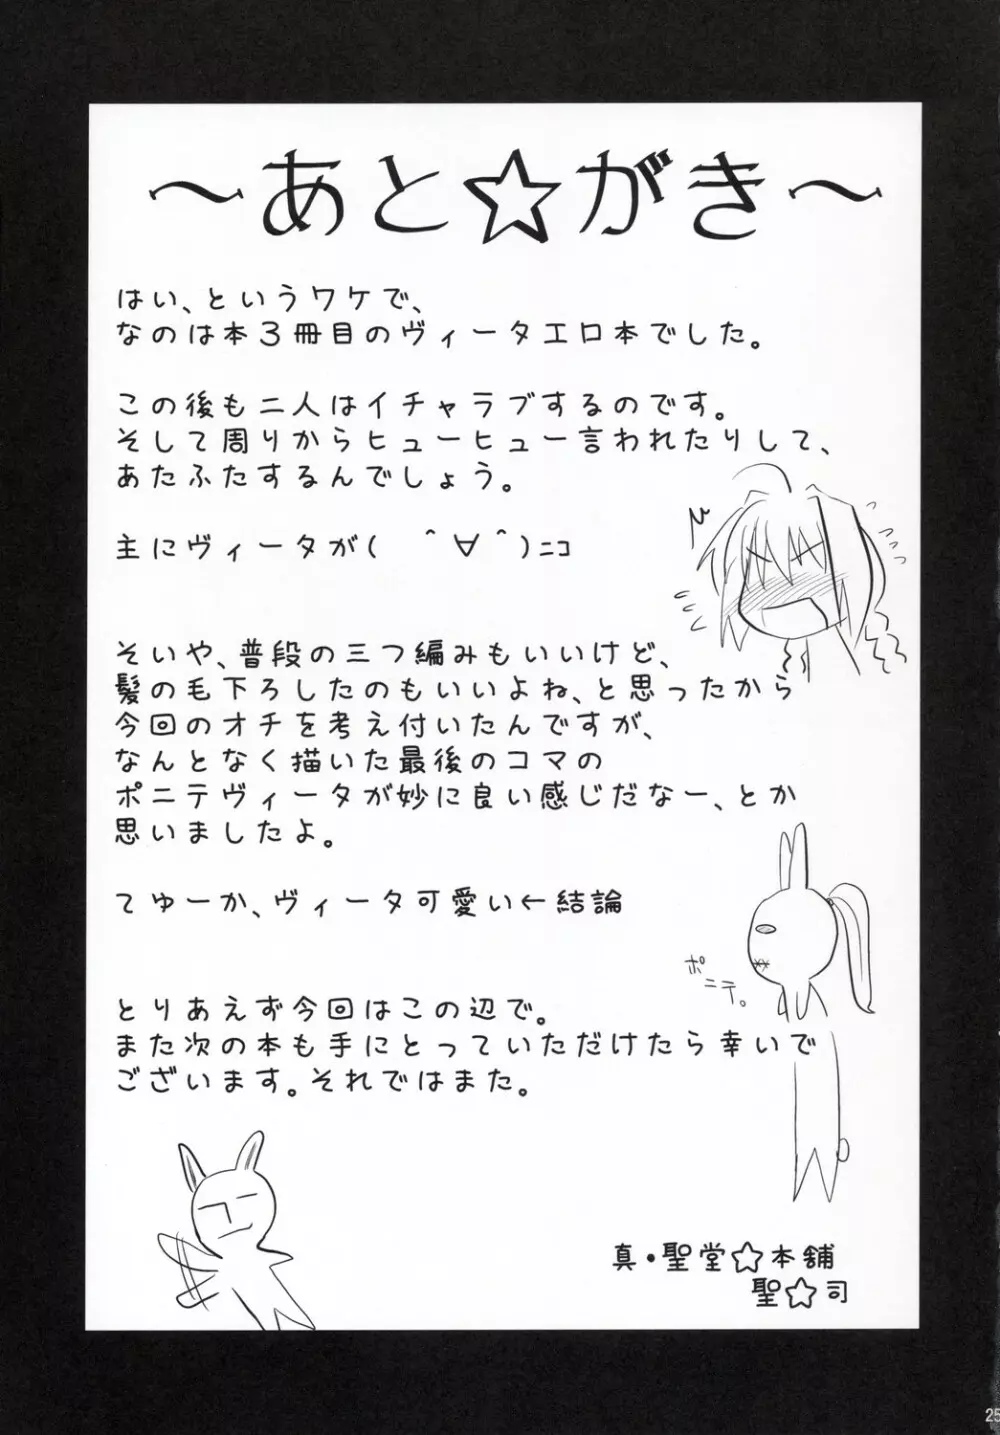 ～あと☆がき～
はい、というワケで、
なのは本3冊目のヴィータエロ本でした。
この後も二人はイチャラブするのです。
そして周りからヒューヒュー言われたりして、
あたふたするんでしょう。
主にヴィータが( ＾∀＾)ﾆｺ
そいや、普段の三つ編みもいいけど、
髪の毛下ろしたのもいいよね、と思ったから
今回のオチを考え付いたんですが、
なんとなく描いた最後のコマの
ポニテヴィータが妙に良い感じだなー、とか
思いましたよ。
てゆーか、ヴィータ可愛い←結論
ポニテ。
とりあえず今回はこの辺で。
また次の本も手にとっていただけたら幸いで
ございます。それではまた。
真・聖堂☆本舗
聖☆司
25